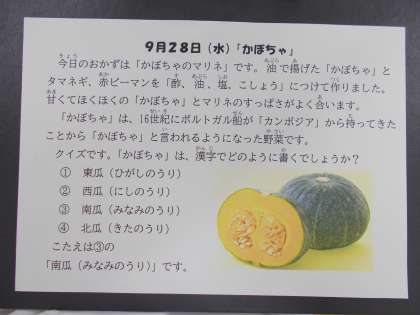 9月28日（水）「かぼちゃ」
今日のおかずは「かぼちゃのマリネ」です。油で揚げた「かぼちゃ」と
タマネギ、赤ピーマンを「酢、油、塩、こしょう」につけて作りました。
甘くてほくほくの「かぼちゃ」とマリネのすっぱさがよく合います。
「かぼちゃ」は、16世紀にポルトガル船が「カンボジア」から持ってきた
ことから「かぼちゃ」と言われるようになった野菜です。
クイズです。「かぼちゃ」は、漢字でどのように書くでしょうか？
① 東瓜（ひがしのうり）
② 西瓜（にしのうり）
③ 南瓜（みなみのうり）
④ 北瓜（きたのうり）
こたえは③の
「南瓜（みなみのうり）」です。